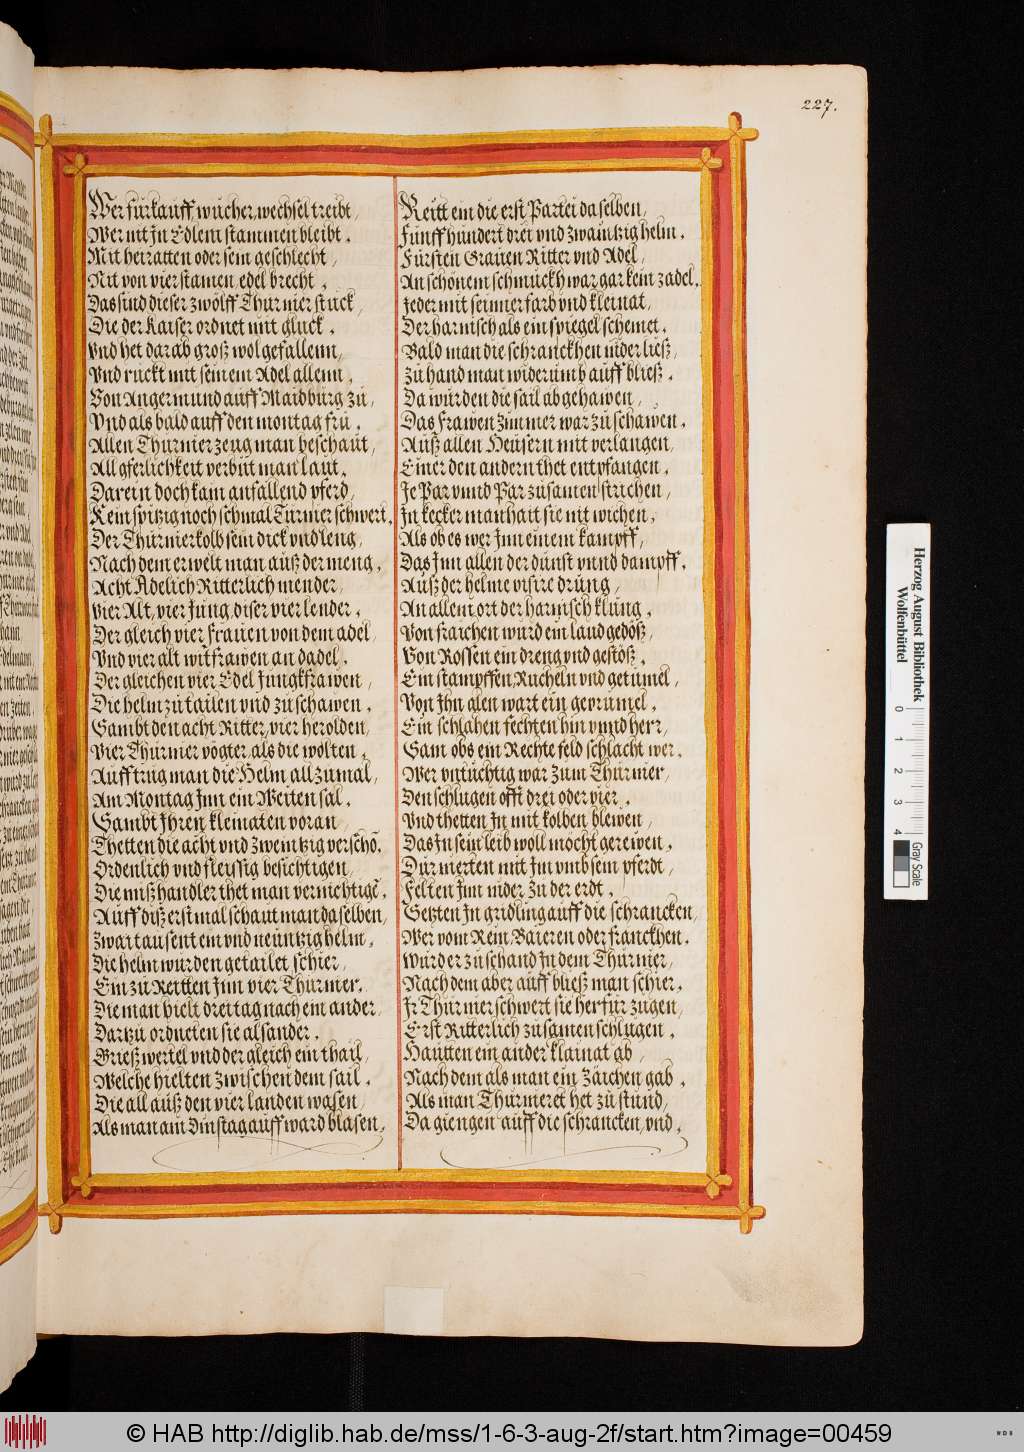 227.
Wer fürkauff, wucher, wechsel treibt,
Wer nit Jn Edlem stammen bleibt.
Mit heiratten oder sein geschlecht,
Nit von vier stamen edel brecht,
Das sind dieser zwölff Thurnier stuck,
Die der Kaiser ordnet mit gluck.
vnd het darab groß wolgefallenn,
Vnd ruckt mit seinem Adel allenn,
Von Angermund auff Maidburg zu,
Vnd als bald auff den montag fru.
Allen Thurnier zeug man beschaut,
All gferlichkeit verbüt man laut.
Darein doch kain anfallend pferd,
Kein spitzig noch schmal Turnier schwert,
Der Thurnierkolb sein dick vnd leng,
Nach dem erwelt man auß der meng,
Acht Adelich Ritterlich mender,
vier Alt, vier Jung, diser vier lender.
Der gleich vier frauen von dem adel
Vnd vier alt witfrawen an dadel.
Der gleichen vier Edel Jungkfrawen,
Die helm zu tailen vnd zu schawen,
Sambt den acht Ritter, vier herolden,
Vier Thurnier vögter, als die wolten,
Auff trug man die Helm all zumal,
Am Montag Jnn ein Weiten sal.
Sambt Jhren kleinaten voran,
Thetten die acht vnd zweintzig verschö.
Ordenlich vnd fleissig besichtigen,
Die mißhandler thet man vernichtigē.
Auff diß erst mal schaut man daselben,
Zwaitausent ein vnd neuntzig helm,
Die helm wurden getailet schier,
Ein zu Reitten Jnn vier Thurnier.
Die man hielt drei tag nach ein ander,
Dartzu ordneten sie alsander.
Grießwertel vnd der gleich ein thail,
Welche hielten Zwischen dem sail.
Die all auß den vier landen wasen,
Als man am Dinstag auff ward blasen,
Reitt ein die erst Partei daselben,
Fünff hundert drei vnd zwaintzig helm.
Fürsten Grauen Ritter vnd Adel,
An schönem schmuckh war gar kein zadel,
Jeder mit seinner farb vnd kleinat,
Der harnisch als ein spiegel scheinet.
Bald man die schranckhen nider ließ,
Zu hand man widerumb auff bließ.
Da wurden die sail abgehawen,
Das frawen Zimmer war zu schawen.
Auß allen Heusern mit verlangen,
Einer den andern thet entpfangen.
Je Par vnnd Par zusamen strichen,
Jn kecker manhait sie nit wichen,
Als ob es wer Jnn einem kampff,
Das Jnn allen der dunst vnnd dampff,
Auß der helme visire drung,
An allem ort der harnisch klung.
Von straichen wurd ein land gedöß,
Von Rossen ein dreng vnd gestöß.
Ein stampffen, Rucheln vnd getümel,
Von Jhn alen wart ein geprümel,
Ein schlahen fechten hin vnnd herr,
Sam obs ein Rechte feld schlacht wer.
Wer vntüchtig war zum Thurnier,
Den schlugen offt drei oder vier,
Vnd thetten Jn mit kolben blewen,
Das Jn sein leib woll mocht gerewen,
Durnierten mit Jm vmb sein pferdt,
Felten Jnn nider Zu der erdt.
Setzten Jn gridling auff die schrancken,
Wer vom Rein, Baieren oder franckhen.
Wurd er zu schand Jn dem Thurnier,
Nach dem aber auff bließ man schier,
Jr Thurnier schwert sie herfür zugen,
Erst Ritterlich zusamen schlugen.
Hautten ein ander klainat ab,
Nach dem als man ein Zaichen gab,
Als man Thurnieret het zu stund,
Da giengen auff die schrancken, vnd,
Herzog August Bibliothek
Wolfenbüttel
0 1 2 3 4
Gray Scale
© HAB http://diglib.hab.de/mss/1-6-3-aug-2f/start.htm?image=00459